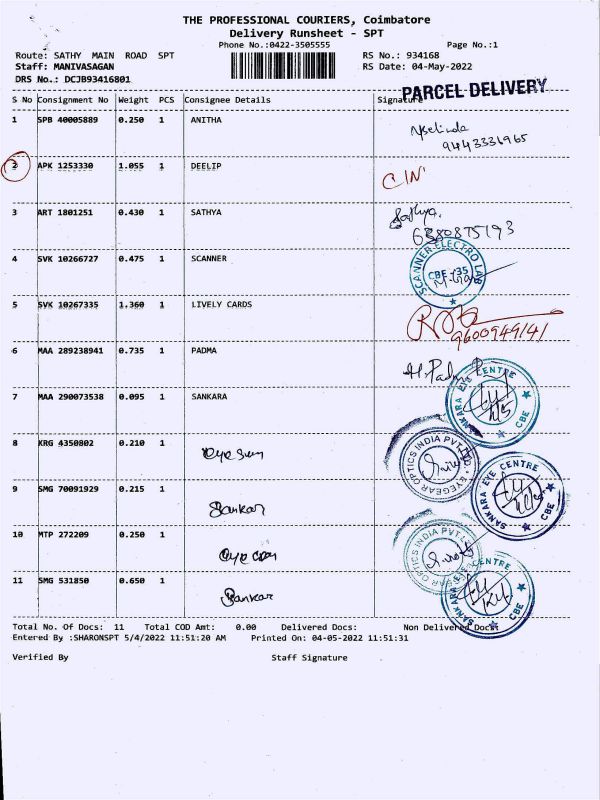 THE PROFESSIONAL COURIERS, Coimbatore
Delivery Runsheet - SPT
Phone No.:0422-3505555 Page No.:1
Route: SATHY MAIN ROAD SPT RS No.: 934168
Staff: MANIVASAGAN RS Date: 04-May-2022
DRS No.: DCJB93416801
PARCEL DELIVERY
S No Consignment No Weight PCS Consignee Details Signature
1 SPB 40005889 0.250 1 ANITHA
9443331965
2 APK 1253330 1.055 1 DEELIP
3 ART 1801251 0.430 1 SATHYA Sathya.
6380875193
4 SVK 10266727 0.475 1 SCANNER SCANNER ELECTRO LAB
CBE -35
5 SVK 10267335 1.360 1 LIVELY CARDS
9600949141
6 MAA 289238941 0.735 1 PADMA
7 MAA 290073538 0.095 1 SANKARA SANKARA EYE CENTRE CBE
8 KRG 4350802 0.210 1 EYEGEAR OPTICS INDIA PVT.LTD.
9 SMG 70091929 0.215 1 Sankar SANKARA EYE CENTRE CBE
10 MTP 272209 0.250 1 OPTICS INDIA PVT.
11 SMG 531850 0.650 1 Sankar SANKARA EYE CENTRE CBE
Total No. Of Docs: 11 Total COD Amt: 0.00 Delivered Docs: Non Delivered Docs:
Entered By :SHARONSPT 5/4/2022 11:51:20 AM Printed On: 04-05-2022 11:51:31
Verified By Staff Signature